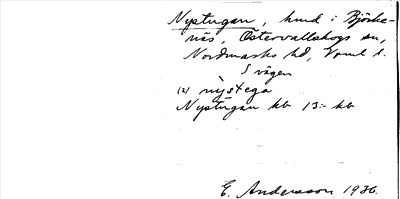 Nystugan, hmd i Björke-
näs, Östervallskogs sn,
Nordmarks hd, Vrml l.
S vägen
(2) nystega
Nystugan hb 13:- kb
E. Andersson 1936.